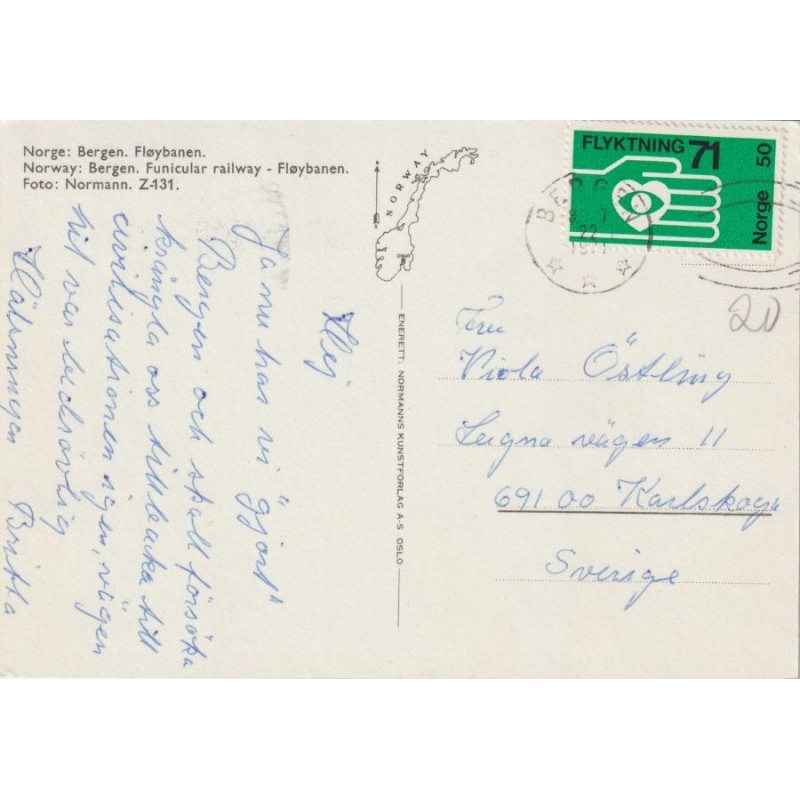 Norge: Bergen. Fløybanen.
Norway: Bergen. Funicular railway - Fløybanen.
Foto: Normann. Z-131.
NORWAY
OSLO
FLYKTNING 71
Norge 50
BERGEN
22
1971
20
Hej
Ja nu har vi "gjort"
Bergen och skall försöka
krångla oss tillbaka till
civilisationen igen, vägen
hit var bedrövlig
Hälsningar
Britta
ENERETT: NORMANNS KUNSTFORLAG A-S OSLO
Fru
Viola Östling
vägen 11
691 00 Karlskoga
Sverige